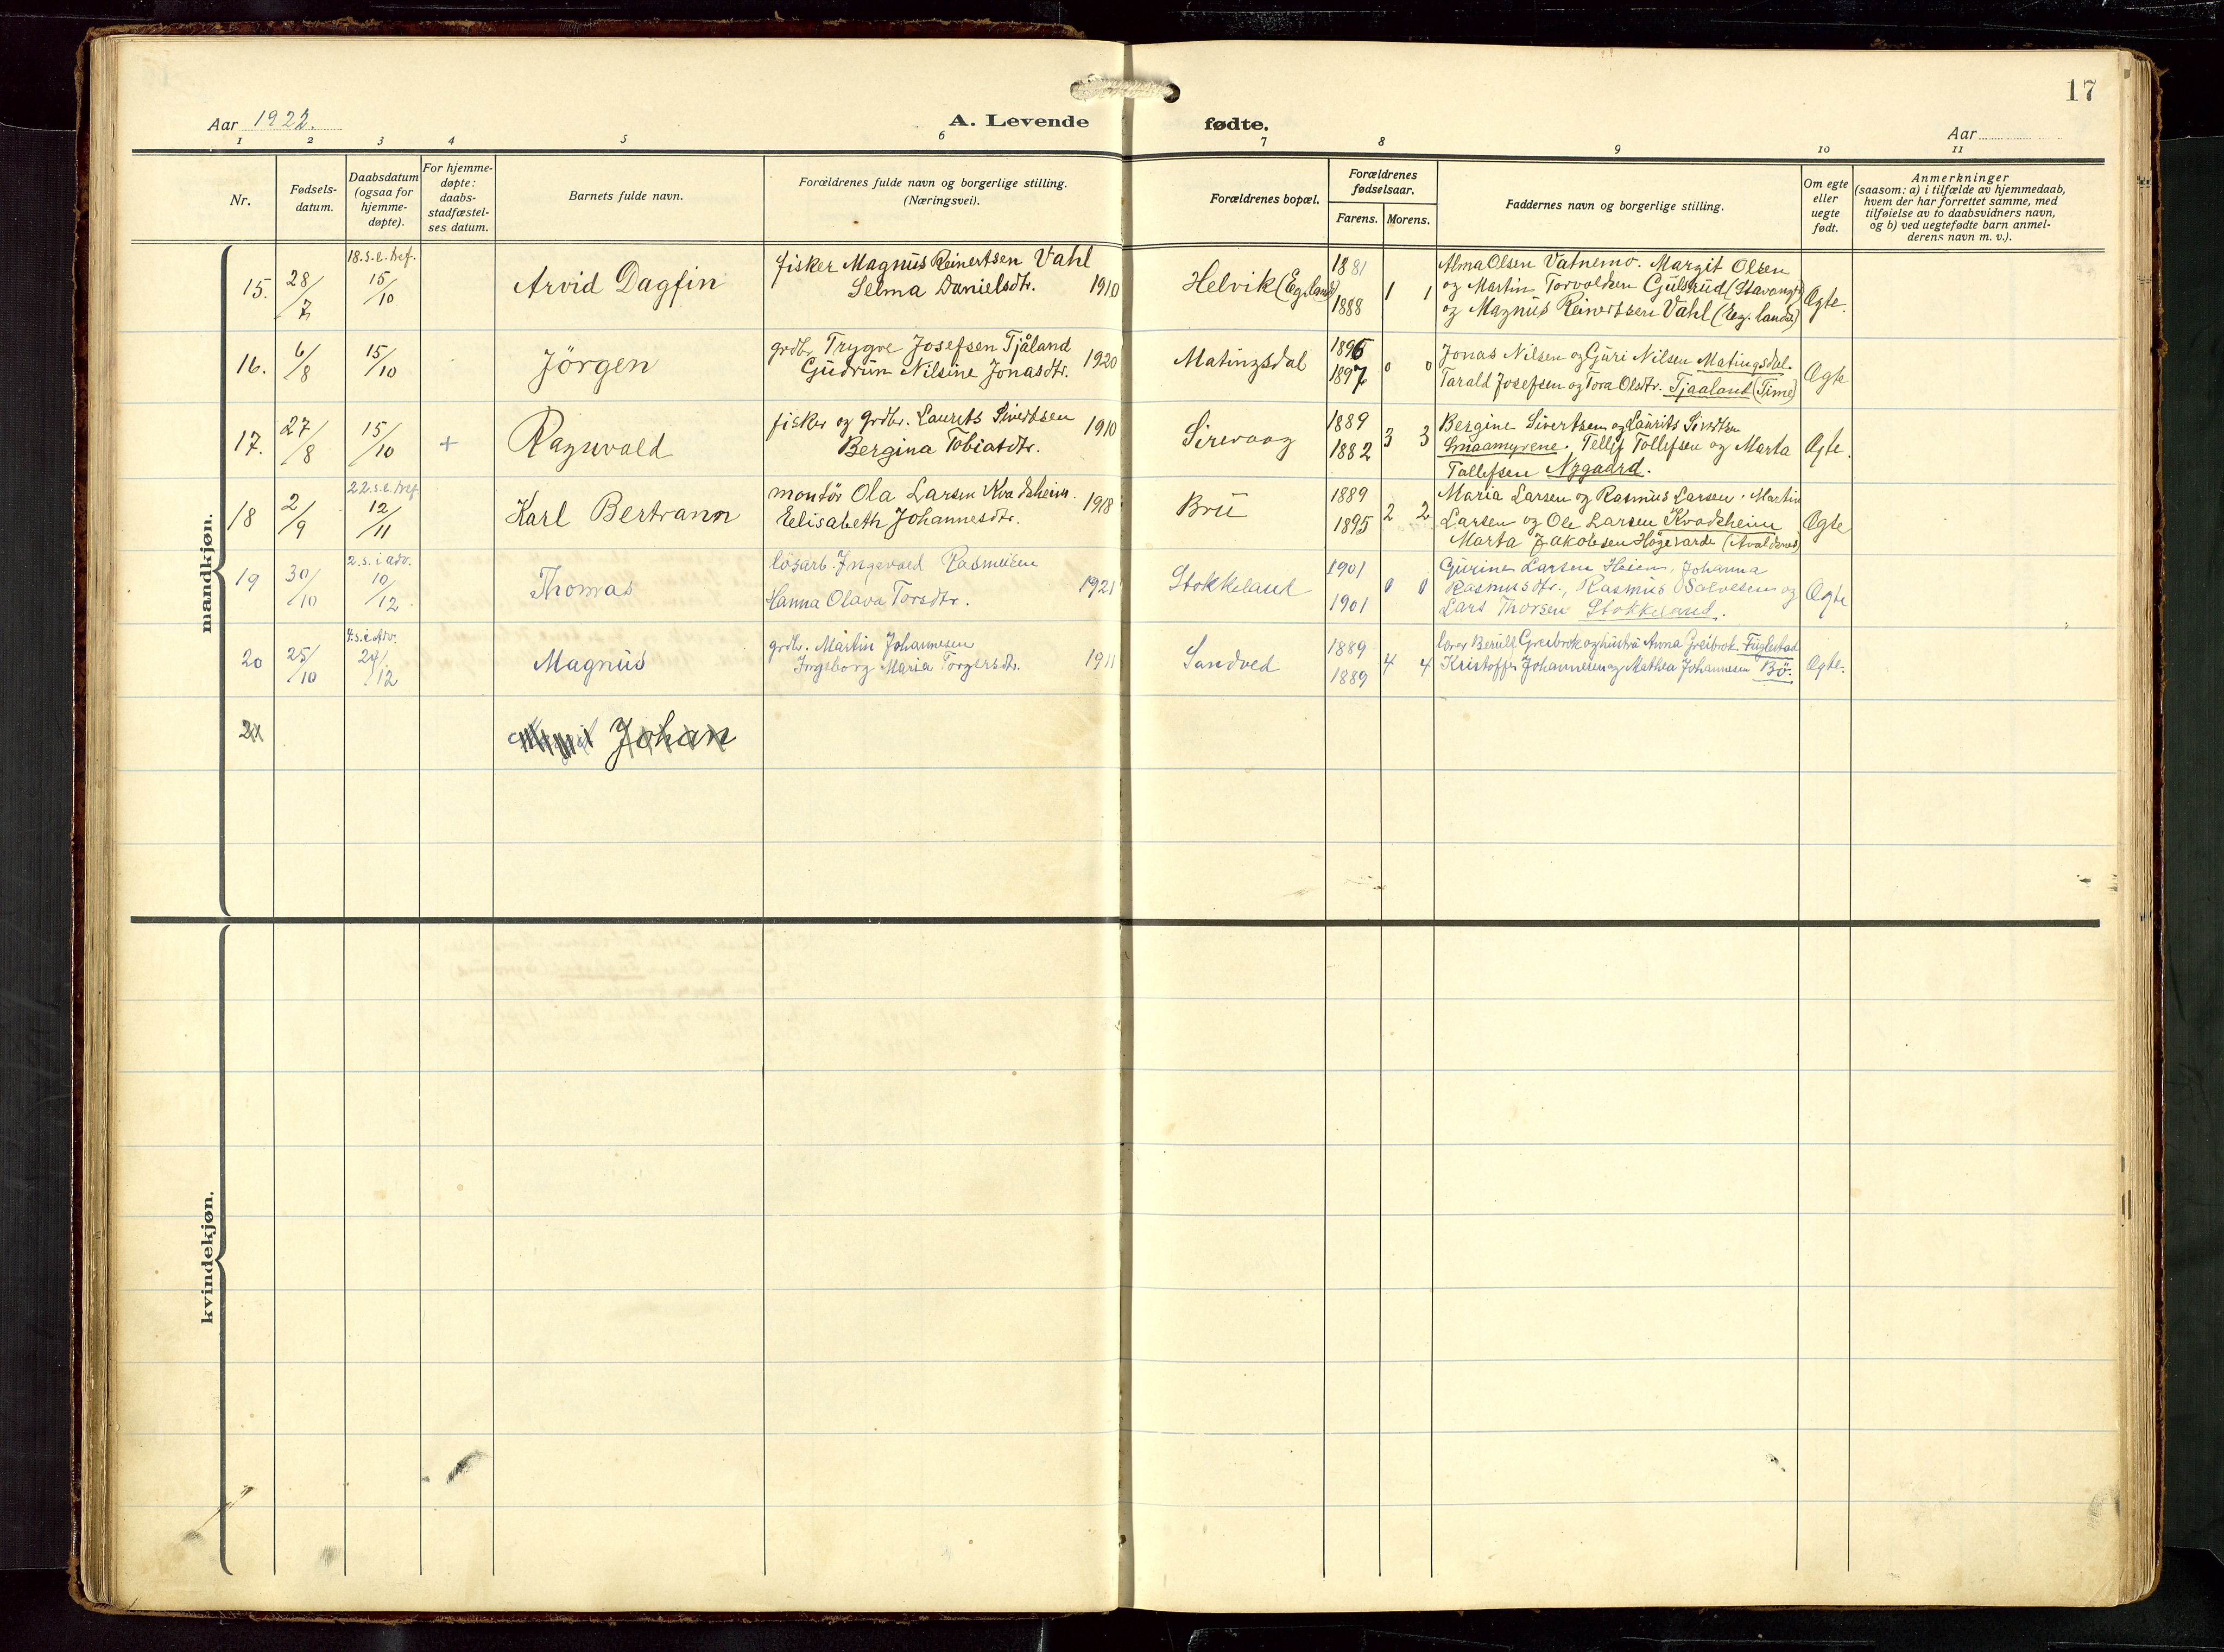 17
Aar 1922.
A. Levende fødte.
Aar
1 2 3 4 5 6 7 8 9 10 11
Nr.
Fødsels-
datum.
Daabsdatum
(ogsaa for
hjemme-
døpte).
For hjemme-
døpte:
daabs-
stadfæstel-
ses datum.
Barnets fulde navn.
Forældrenes fulde navn og borgerlige stilling.
(Næringsvei).
Forældrenes bopæl.
Forældrenes
fødselsaar.
Farens. Morens.
Faddernes navn og borgerlige stilling.
Om egte
eller
uegte
født.
Anmerkninger
(saasom: a) i tilfælde av hjemmedaab,
hvem der har forrettet samme, med
tilføielse av to daabsvidners navn,
og b) ved uegtefødte barn anmel-
derens navn m. v.).
mandkjøn.
15. 28/7
18.s.e.tref.
15/10
Arvid Dagfin
fisker Magnus Reinertsen Vahl
Selma Danielsdtr. 1910
Helvik (Eg.land)
1881
1888
1 1
Alma Olsen Vatnemo. Margit Olsen
og Martin Torvoldsen Gulsrud (Stavanger)
og Magnus Reinertsen Vahl (Eg. land)
Ægte.
16. 6/8 15/10
Jörgen
grdbr. Trygve Josefsen Tjåland
Gudrun Nilsine Jonasdtr. 1920
Matingsdal
1896
1897
0 0
Jonas Nilsen og Guri Nilsen Matingsdal.
Tarald Josefsen og Tora Olsdtr. Tjaaland (Time)
Ægte
17. 27/8 15/10 +
Ragnvald
fisker og grdbr. Laurits Sivertsen 1910
Bergina Tobiasdtr.
Sirevaag
1889
1882
3 3
Bergine Sivertsen og Laurits Sivertsen
Smaamyrene. Tellef Tollefsen og Marta
Tollefsen Nygaard.
Ægte.
18 2/9
22.s.e.tref
12/11
Karl Bertrann
montör Ola Larsen Kvadsheim.
Eelisabeth Johannesdtr. 1918
Brü
1889
1895
2 2
Maria Larsen og Rasmus Larsen. Martin
Larsen og Ole Larsen Kvadsheim
Marta Jakobsen Högevarde (Avaldsnes)
Ægte
19 30/10
2.s.i adv.
10/12.
Thomas
lösarb. Ingvald Rasmussen
Hanna Olava Torsdtr. 1921
Stokkeland
1901
1901
0 0
Gurine Larsen Heien, Johanna
Rasmusdtr., Rasmus Salvesen og
Lars Thorsen Stokkeland.
Ægte
20 25/10
4.s.i Adv.
24/12
Magnus
grdbr. Martin Johannesen
Ingeborg Maria Torgersdtr. 1911
Sandved
1889
1889
4 4
lærer Greibrok og hustru Anna Greibrok Fuglestad
Kristoffer Johannesen og Mathea Johannesen Bö.
Ægte.
21
Johan
kvindekjøn.